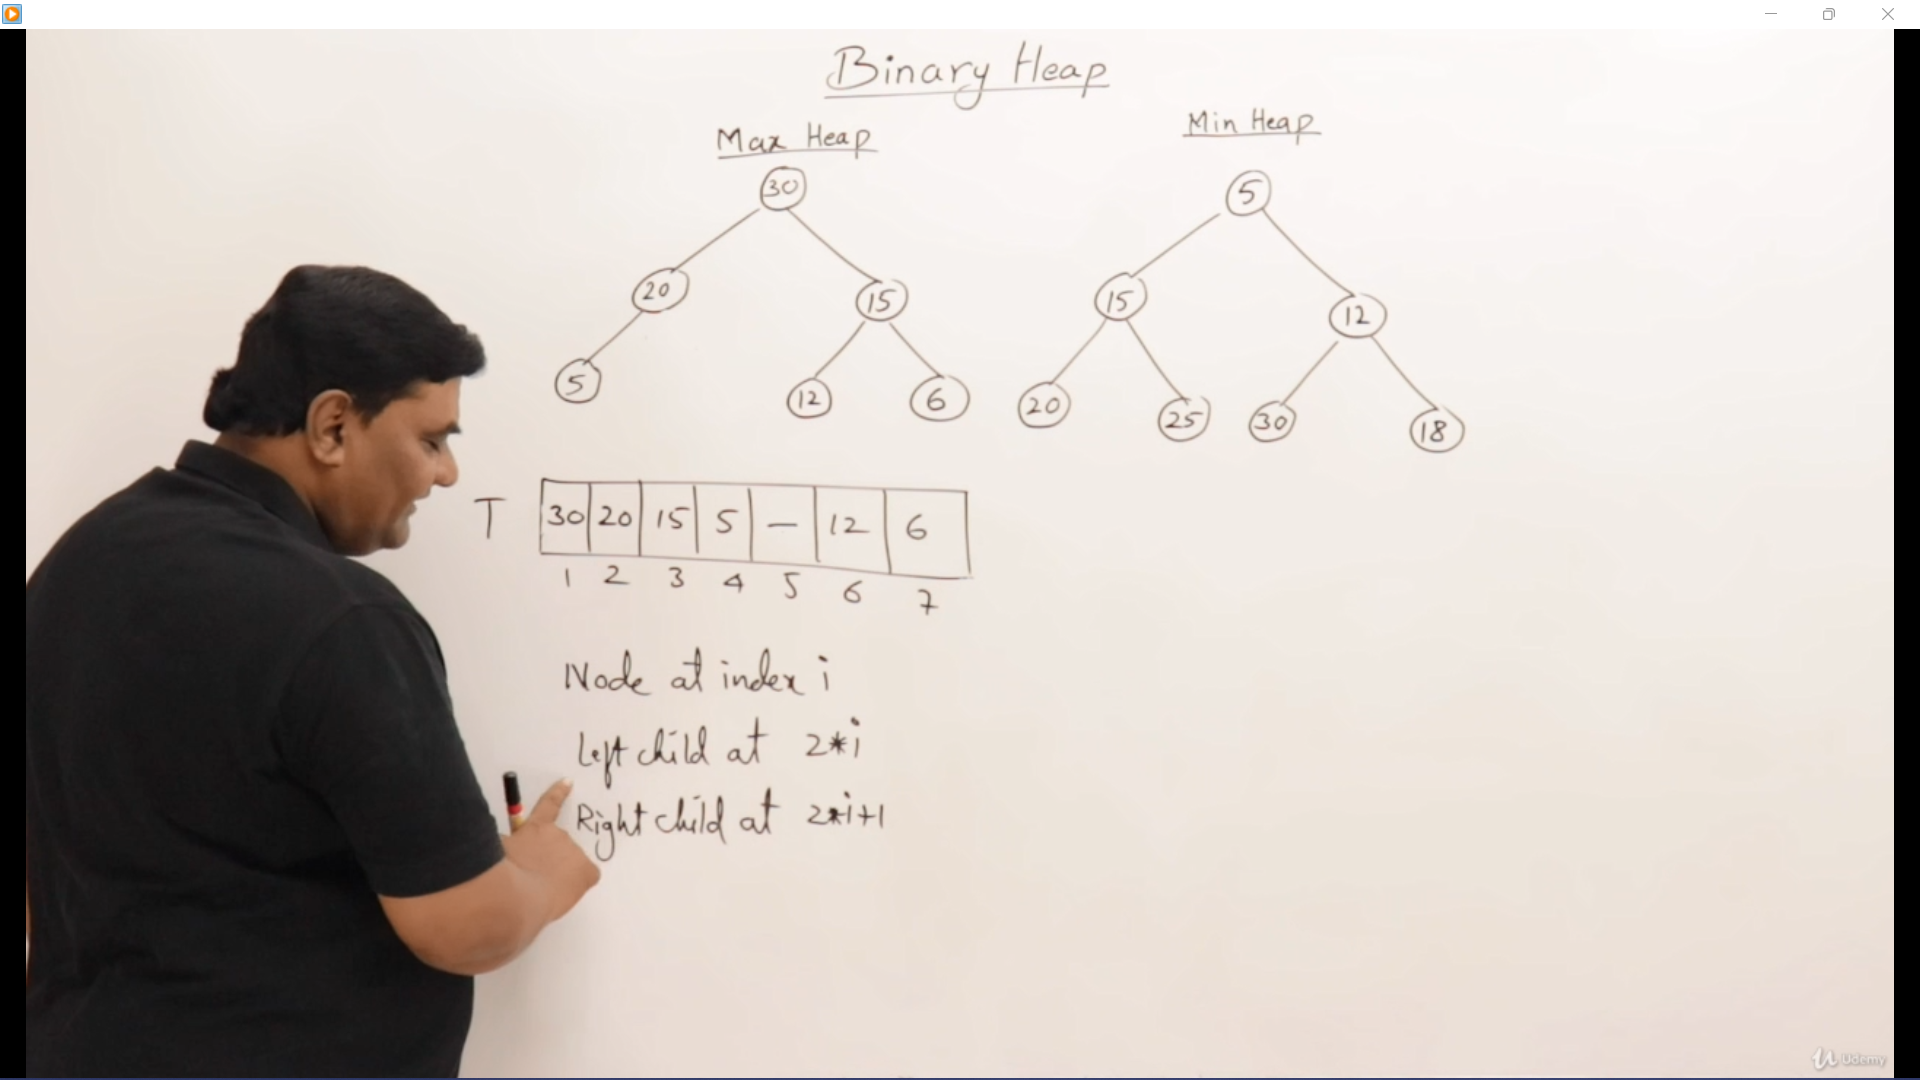 Binary Heap
Max Heap
30
20 15
5 12 6
Min Heap
5
15 12
20 25 30 18
T 30 20 15 5 — 12 6
1 2 3 4 5 6 7
Node at index i
Left child at 2*i
Right child at 2*i+1
Udemy